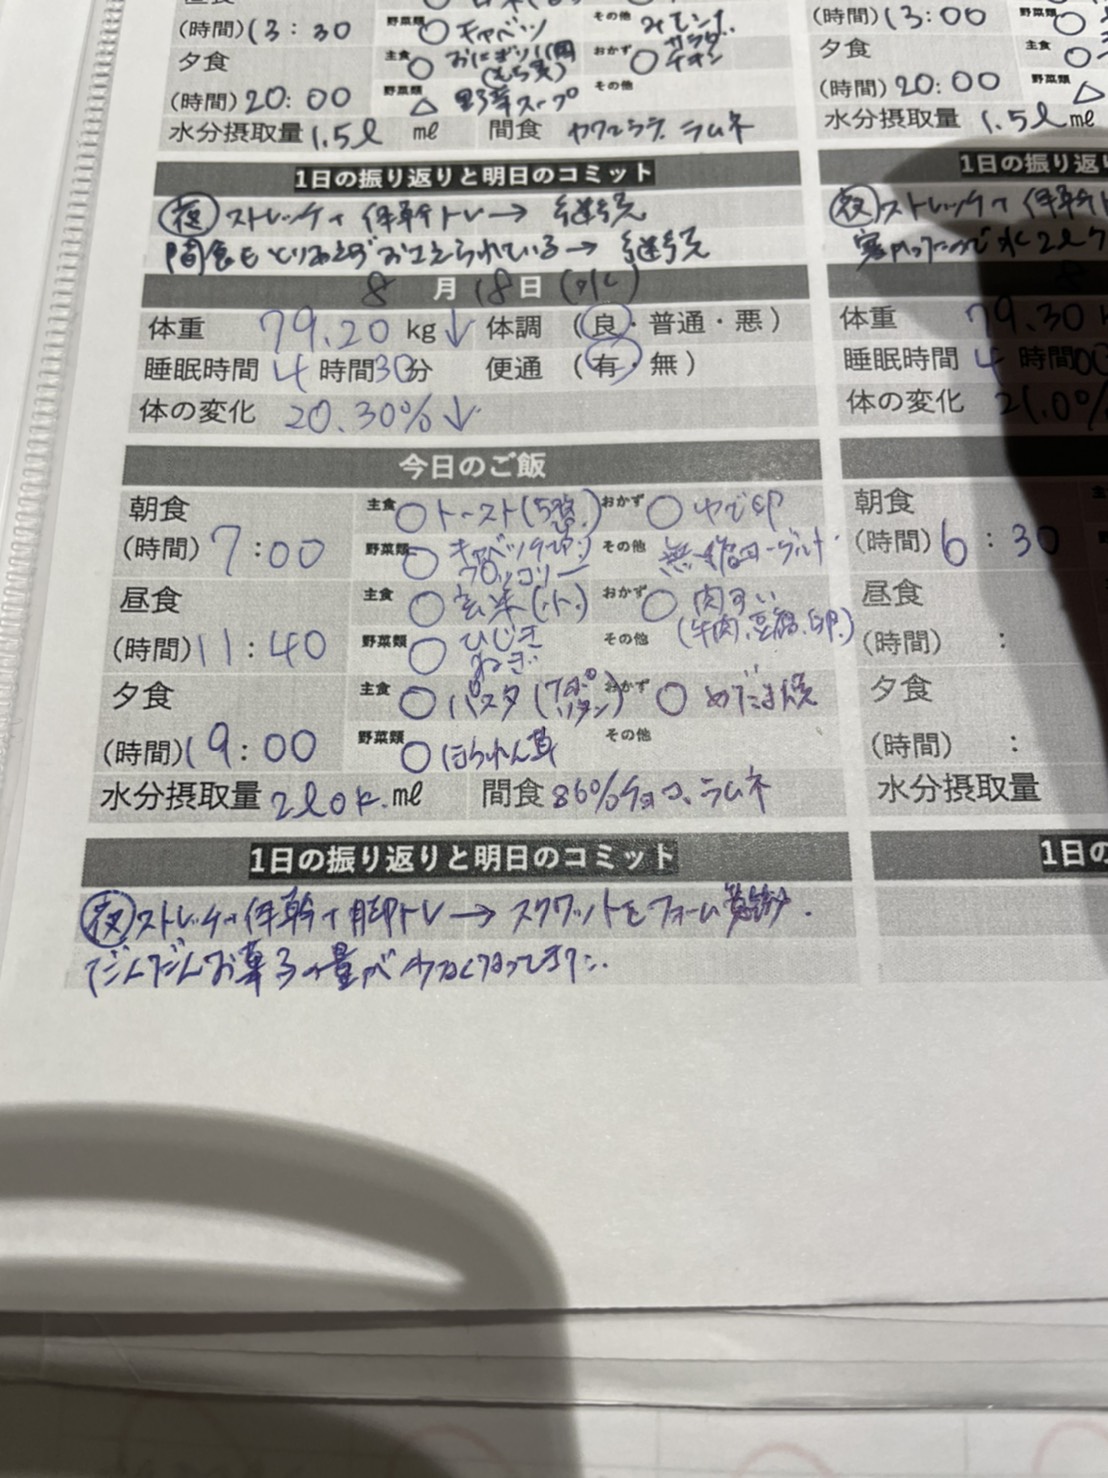 (時間)13:30 野菜類 ○ キャベツ その他
夕食 主食 ○ おにぎり1個 おかず ○ サラダチキン
(もち麦)
(時間)20:00 野菜類 △ 野菜スープ その他
水分摂取量 1.5ℓ mℓ 間食 ラムネ
1日の振り返りと明日のコミット
夜 ストレッチ+体幹トレ→継続
間食もとりあえずおさえられている→継続
8月18日(水)
体重 79.20 kg↓ 体調 (良・普通・悪)
睡眠時間 4時間30分 便通 (有・無)
体の変化 20.30%↓
今日のご飯
朝食 主食 ○ トースト(5枚) おかず ○ ゆで卵
(時間)7:00 野菜類 ○ キャベツ その他 無糖ヨーグルト
ブロッコリー
昼食 主食 ○ 玄米(小) おかず ○ 肉すい
(牛肉、豆腐、卵)
(時間)11:40 野菜類 ○ ひじき その他
ねぎ
夕食 主食 ○ パスタ(ナポリタン) おかず ○ めだま焼
(時間)19:00 野菜類 ○ ほうれん草 その他
水分摂取量 2ℓOK. mℓ 間食 86%チョコ、ラムネ
1日の振り返りと明日のコミット
夜 ストレッチ+体幹+脚トレ→スクワットをフォーム意識.
だんだんお菓子の量が少なくなってきた.
(時間)13:00 野菜類 ○
夕食 主食 ○
(時間)20:00 野菜類 △
水分摂取量 1.5ℓ mℓ
1日の振り返り
夜 ストレッチ+体幹
寒かったので水2ℓ
8
体重 79.30
睡眠時間 4時間00
体の変化 21.0%
朝食
(時間)6:30
昼食
(時間) :
夕食
(時間) :
水分摂取量
1日の